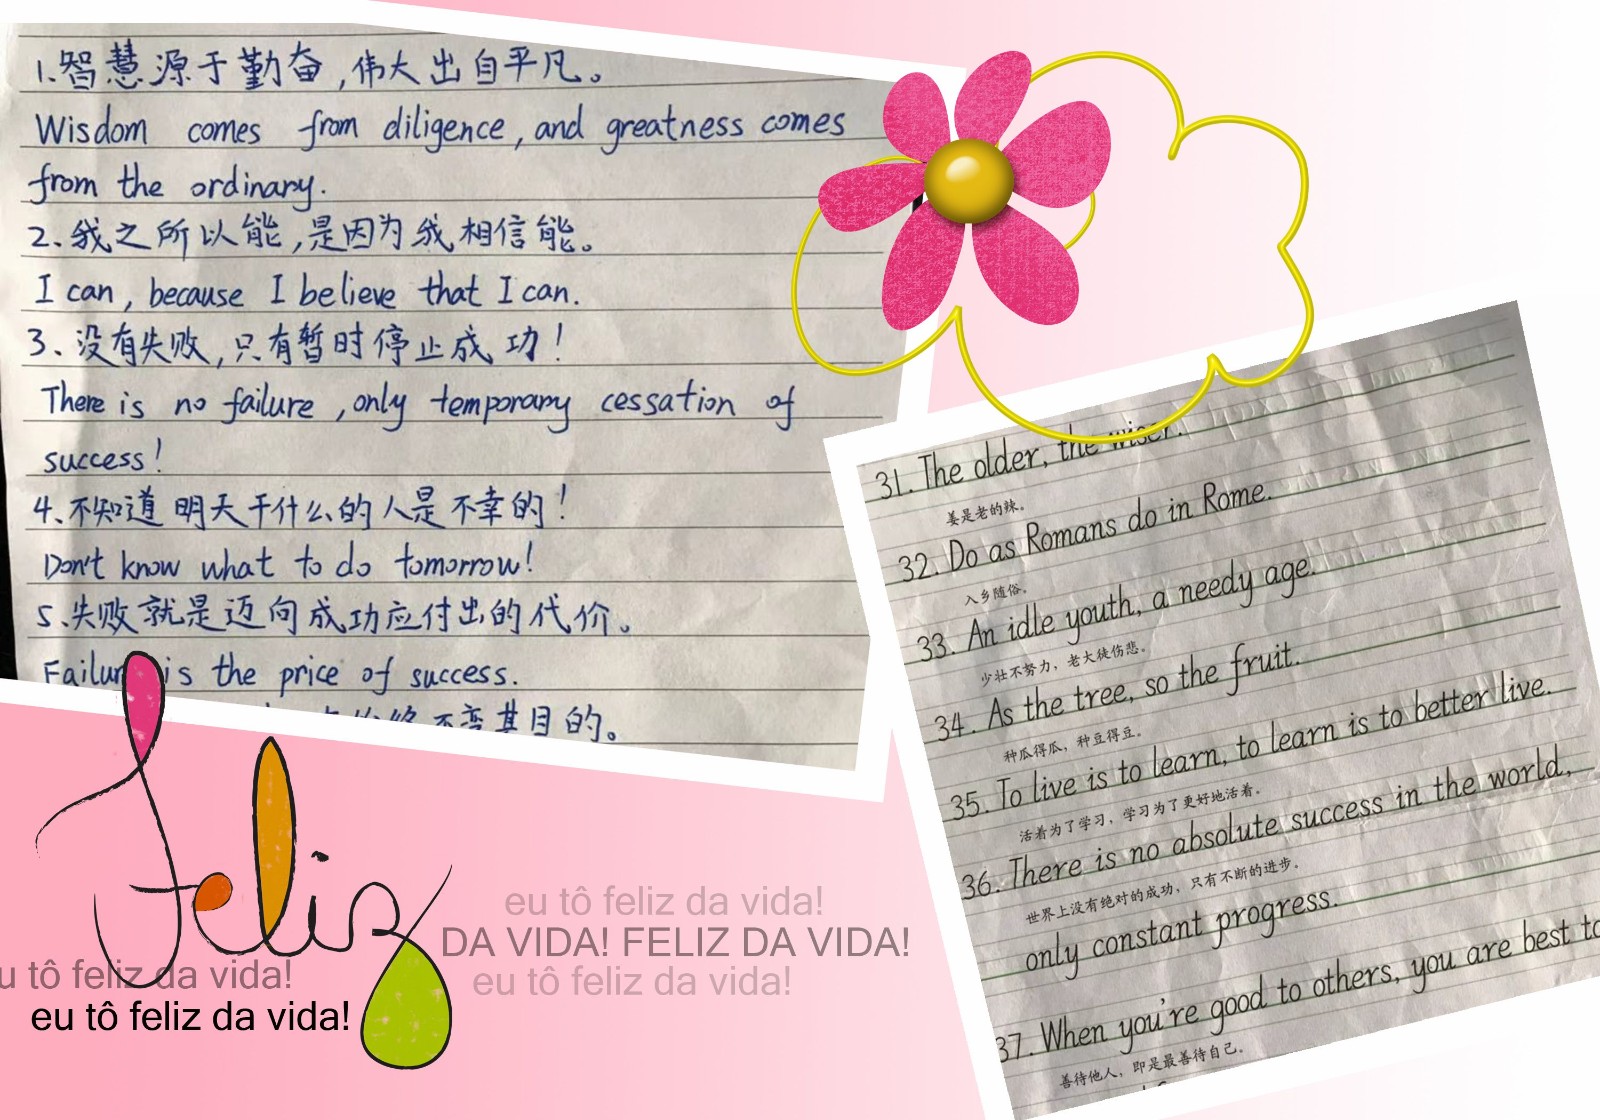 1.智慧源于勤奋,伟大出自平凡。
Wisdom comes from diligence, and greatness comes
from the ordinary.
2、我之所以能,是因为我相信能。
I can, because I believe that I can.
3、没有失败,只有暂时停止成功!
There is no failure, only temporary cessation of
success!
4、不知道明天干什么的人是不幸的!
Don't know what to do tomorrow!
5、失败就是迈向成功应付出的代价。
Failur is the price of success.
不变其目的。
31. The older, the wiser.
姜是老的辣。
32. Do as Romans do in Rome.
入乡随俗。
33. An idle youth, a needy age.
少壮不努力，老大徒伤悲。
34. As the tree, so the fruit.
种瓜得瓜，种豆得豆。
35. To live is to learn, to learn is to better live.
活着为了学习，学习为了更好地活着。
36. There is no absolute success in the world,
世界上没有绝对的成功，只有不断的进步。
only constant progress.
37. When you're good to others, you are best to
善待他人，即是最善待自己。
feliz
eu tô feliz da vida!
DA VIDA! FELIZ DA VIDA!
eu tô feliz da vida!
u tô feliz da vida!
eu tô feliz da vida!